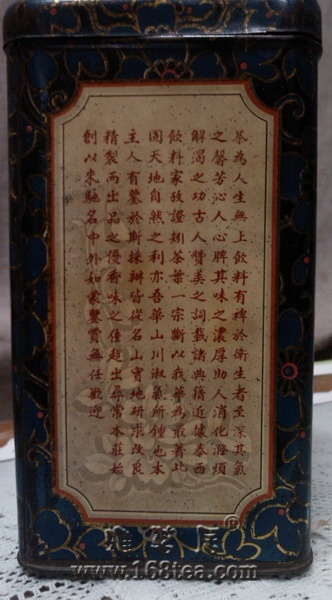 茶為人生無上飲料有裨於衛生者至深其氣
之馨芳沁人心脾其味之濃厚助人消化海煩
解渴之功古人贊美之詞載諸典籍近據泰西
飲料家攷證翔茶葉一宗斷以我華為最著此
固天地自然之利亦吾華山川淑氣所鍾也本
主人有鑒於斯採辦皆從名山實地研求改良
精製而出品之優香味之佳超出尋常本莊始
創以來馳名中外如蒙鑒賞無任歡迎
www.168tea.com